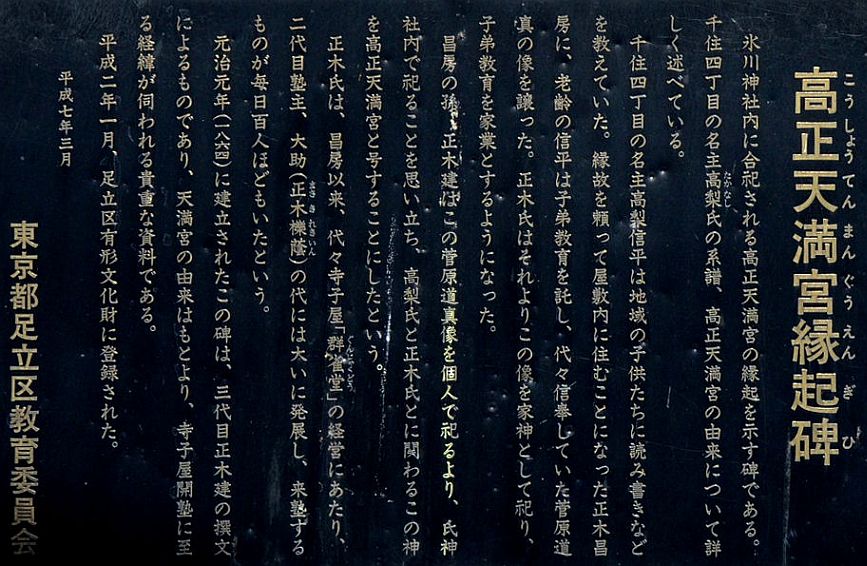 高正天満宮縁起碑
こうしょうてんまんぐうえんぎひ
氷川神社内に合祀される高正天満宮の縁起を示す碑である。
千住四丁目の名主高梨氏の系譜、高正天満宮の由来について詳
たかなし
しく述べている。
千住四丁目の名主高梨信平は地域の子供たちに読み書きなど
を教えていた。縁故を頼って屋敷内に住むことになった正木昌
房に、老齢の信平は子弟教育を託し、代々信奉していた菅原道
真の像を譲った。正木氏はそれよりこの像を家神として祀り、
子弟教育を家業とするようになった。
昌房の孫、正木建はこの菅原道真像を個人で祀るより、氏神
社内で祀ることを思い立ち、高梨氏と正木氏とに関わるこの神
を高正天満宮と号することにしたという。
正木氏は、昌房以来、代々寺子屋「群雀堂」の経営にあたり、
二代目塾主、大助(正木櫟蔭)の代には大いに発展し、来塾する
まさきれきいん
ものが毎日百人ほどもいたという。
元治元年(一八六四)に建立されたこの碑は、三代目正木建の撰文
によるものであり、天満宮の由来はもとより、寺子屋開塾に至
る経緯が伺われる貴重な資料である。
平成二年一月、足立区有形文化財に登録された。
平成七年三月
東京都足立区教育委員会